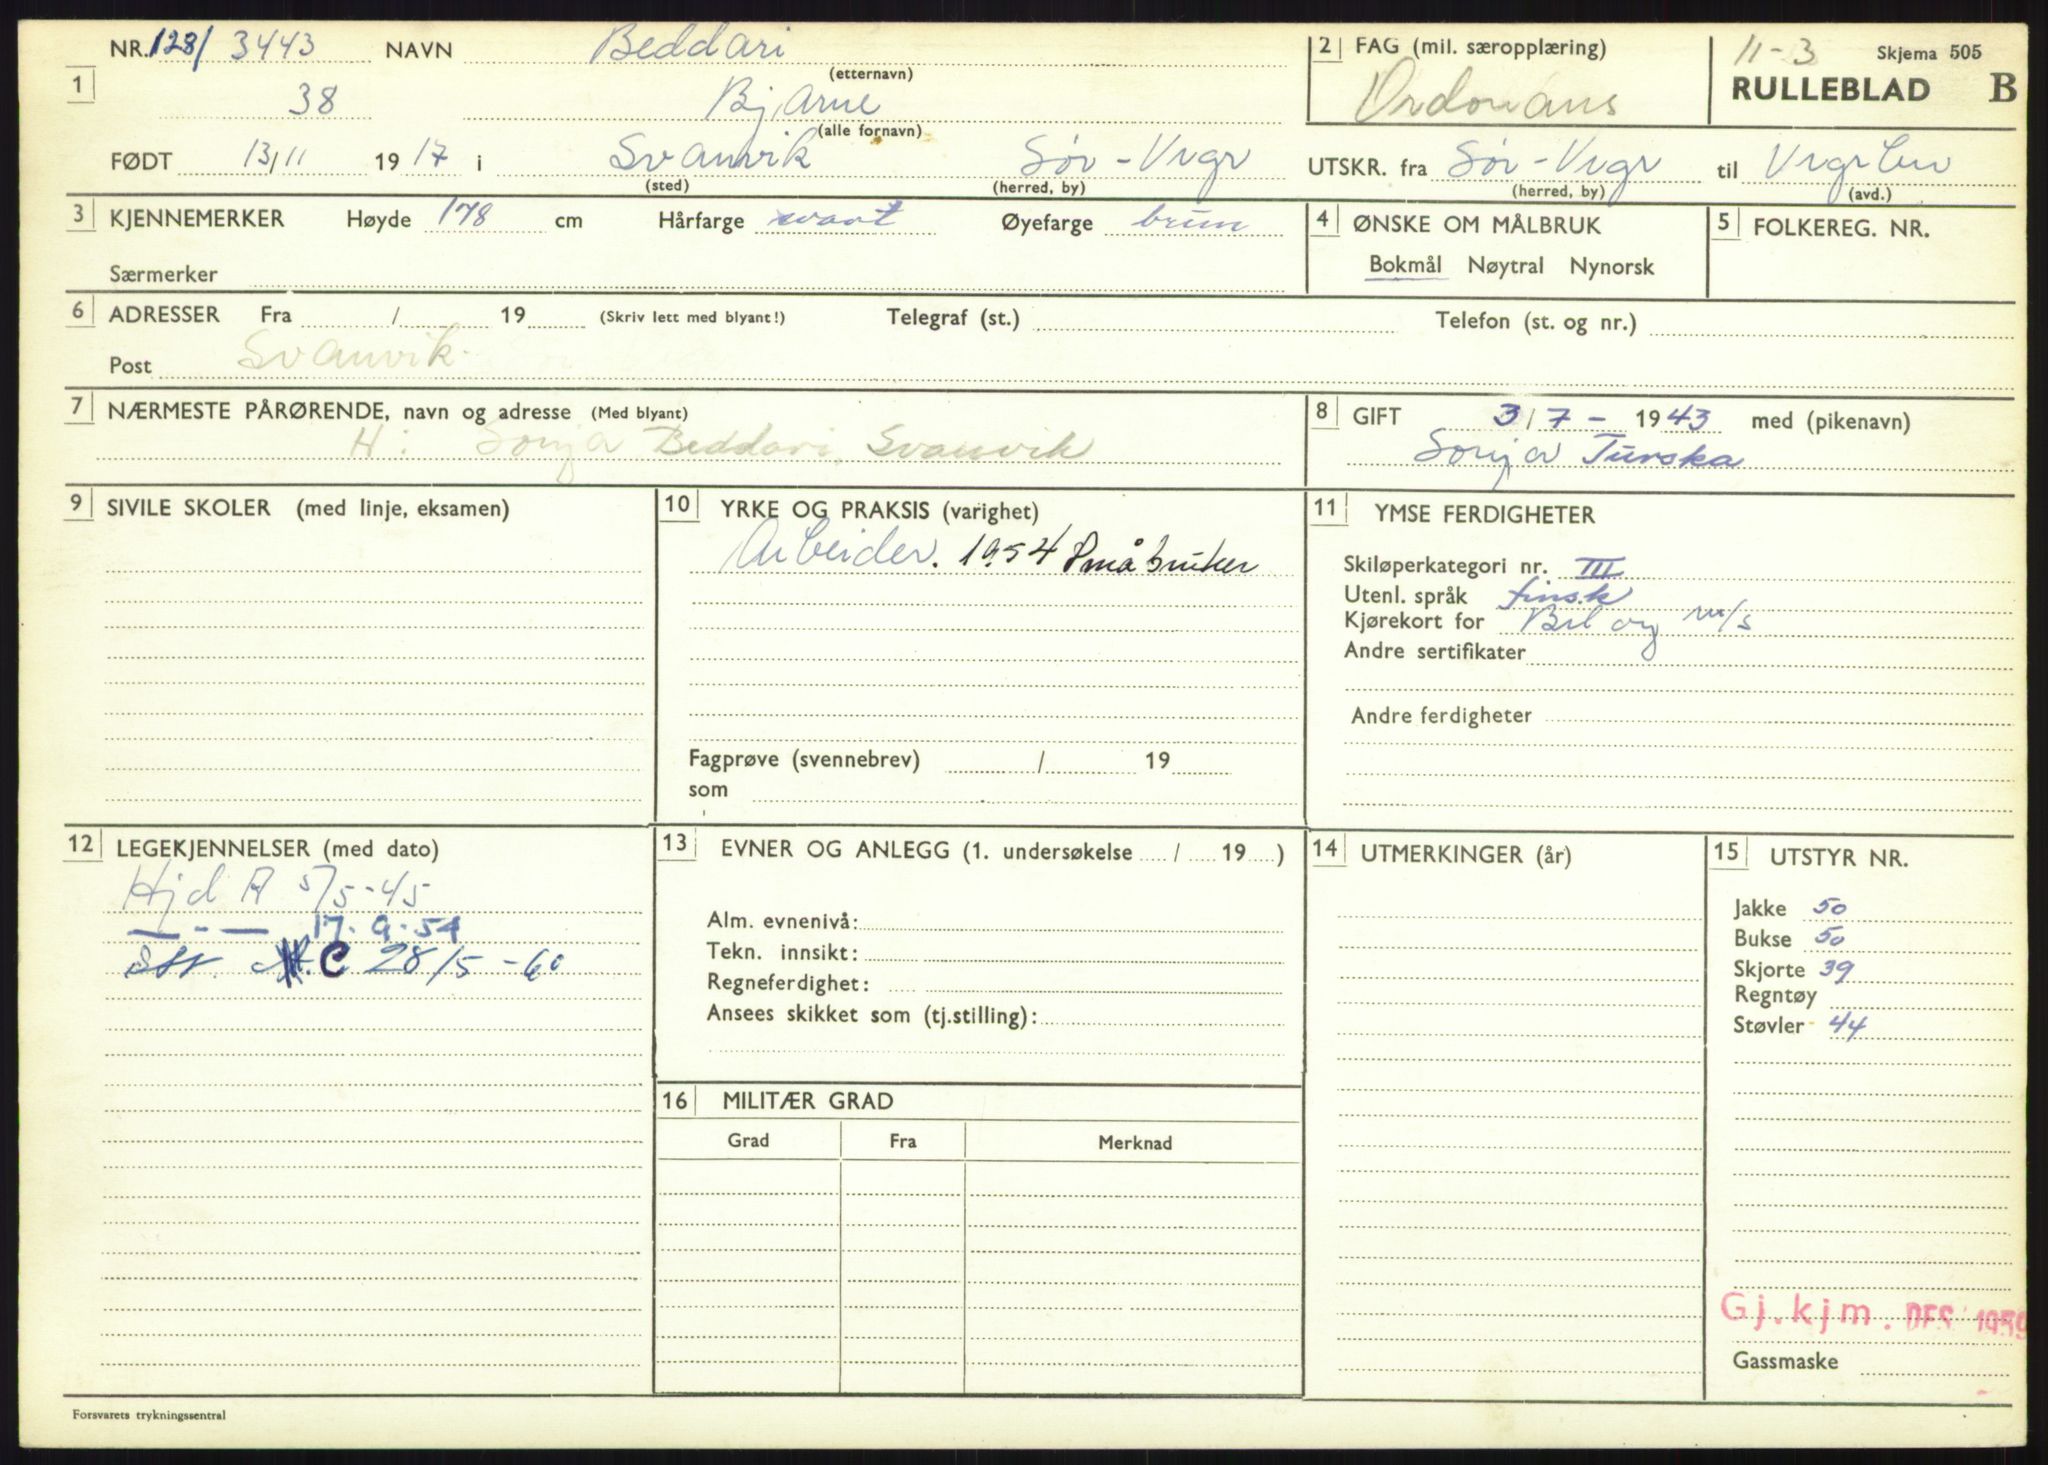 NR. 128/ 3443 NAVN Beddari 2 FAG (mil. særopplæring) 11-3 Skjema 505
(etternavn)
1 38 Bjarne Ordonans RULLEBLAD B
(alle fornavn)
FØDT 13/11 1917 i Svanvik Sør-Vrgr UTSKR. fra Sør-Vrgr til
(sted) (herred, by) (herred, by) (avd.)
3 KJENNEMERKER Høyde 178 cm Hårfarge svart Øyefarge brun 4 ØNSKE OM MÅLBRUK 5 FOLKEREG. NR.
Særmerker Bokmål Nøytral Nynorsk
6 ADRESSER Fra / 19 (Skriv lett med blyant!) Telegraf (st.) Telefon (st. og nr.)
Post Svanvik
7 NÆRMESTE PÅRØRENDE, navn og adresse (Med blyant) 8 GIFT 3/7 - 1943 med (pikenavn)
H: Sonja Beddari, Svanvik Sonja Turska
9 SIVILE SKOLER (med linje, eksamen) 10 YRKE OG PRAKSIS (varighet) 11 YMSE FERDIGHETER
Arbeider. 1954 Småbruker
Skiløperkategori nr. III
Utenl. språk finsk
Kjørekort for Bil og m/s
Andre sertifikater
Andre ferdigheter
Fagprøve (svennebrev) / 19
som
12 LEGEKJENNELSER (med dato) 13 EVNER OG ANLEGG (1. undersøkelse / 19 ) 14 UTMERKINGER (år) 15 UTSTYR NR.
Hjd A 5/5-45
— - — 17.9.54
C 28/5-60
Alm. evnenivå:
Tekn. innsikt:
Regneferdighet:
Ansees skikket som (tj.stilling):
Jakke 50
Bukse 50
Skjorte 39
Regntøy
Støvler 44
16 MILITÆR GRAD
Grad Fra Merknad
Gj.kjm. DES 1959
Gassmaske
Forsvarets trykningssentral